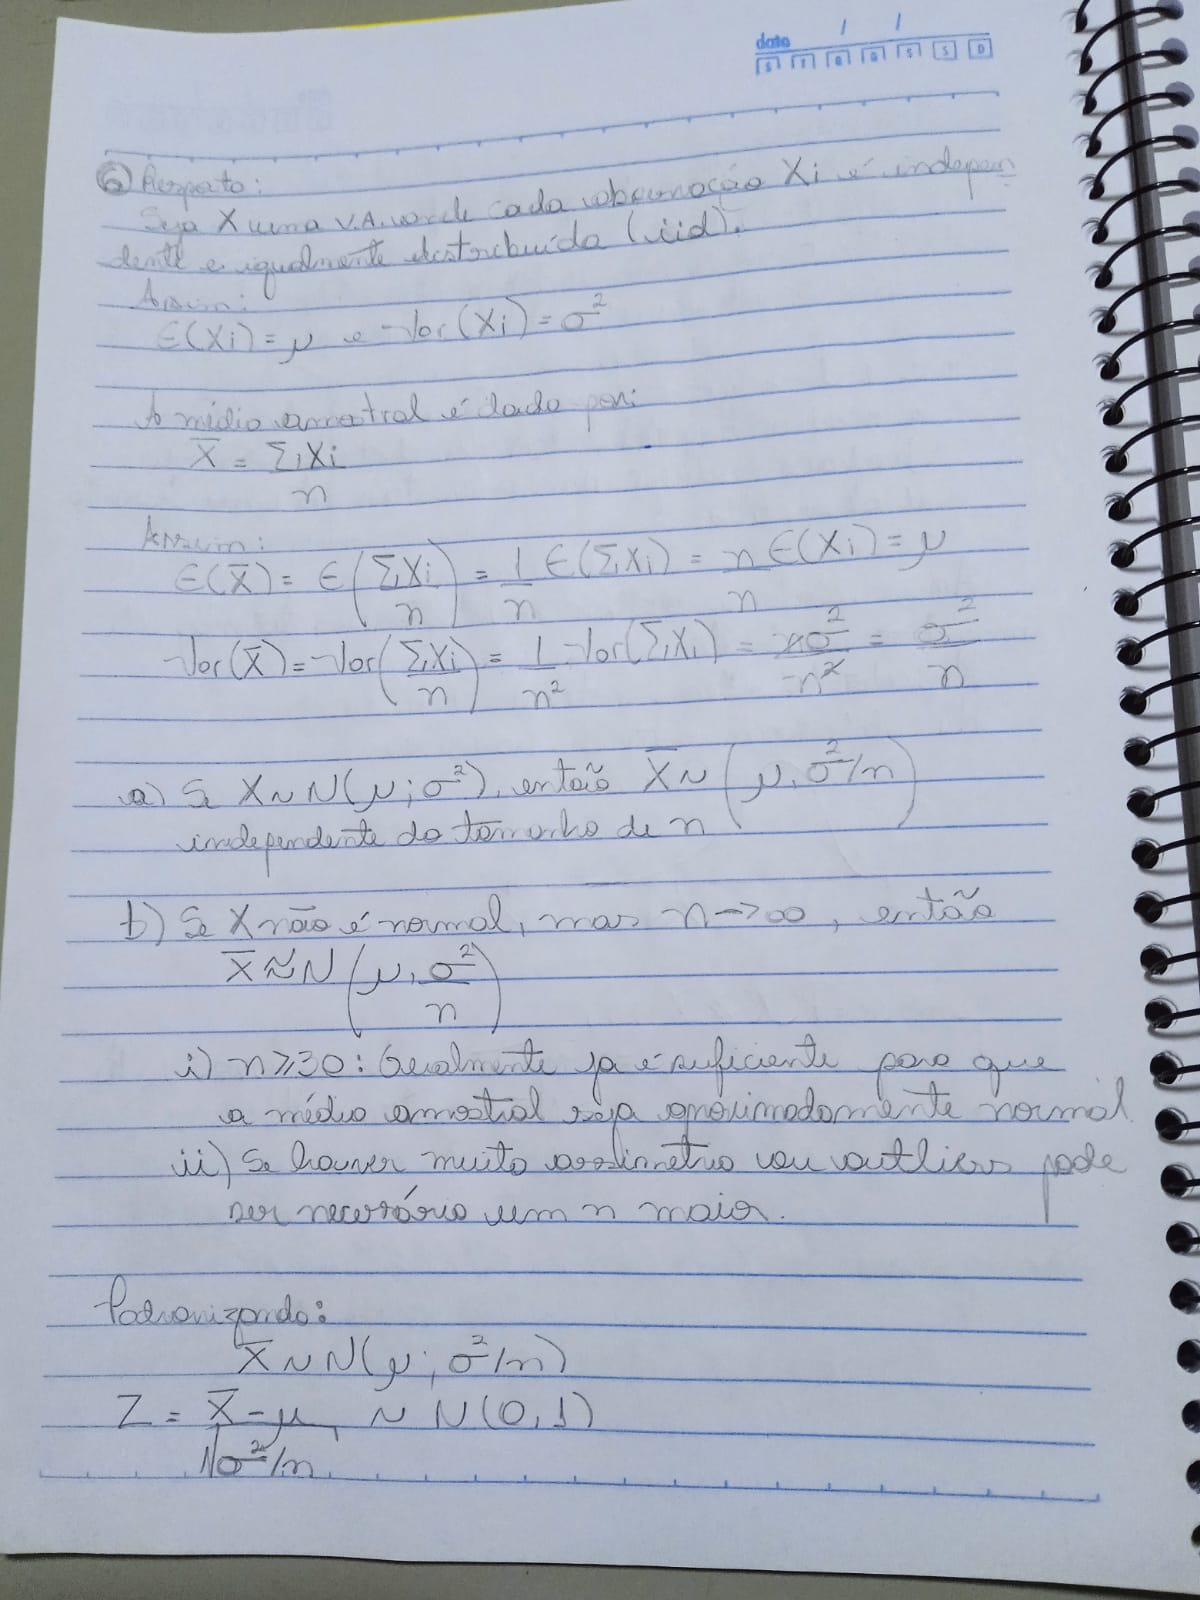 date / /
S T Q Q S S D
6) Resposta:
Seja X uma V.A. onde cada observação Xi é indepen
dente e igualmente distribuída (iid).
Assim:
E(Xi) = μ e Var(Xi) = σ²
A média amostral é dada por:
X̄ = ΣXi
n
Assim:
E(X̄) = E(ΣXi/n) = 1/n E(ΣXi) = n/n E(Xi) = μ
Var(X̄) = Var(ΣXi/n) = 1/n² Var(ΣXi) = nσ²/n² = σ²/n
a) Se X ~ N(μ; σ²), então X̄ ~ (μ, σ²/n)
independente do tamanho de n
b) Se X não é normal, mas n -> ∞, então
X̄ ≈ N(μ, σ²/n)
i) n ≥ 30: Geralmente ja é suficiente para que
a média amostral seja aproximadamente normal.
ii) Se houver muita assimetria ou outliers pode
ser necessário um n maior.
Padronizando:
X̄ ~ N(μ; σ²/n)
Z = X̄ - μ ~ N(0,1)
√σ²/n